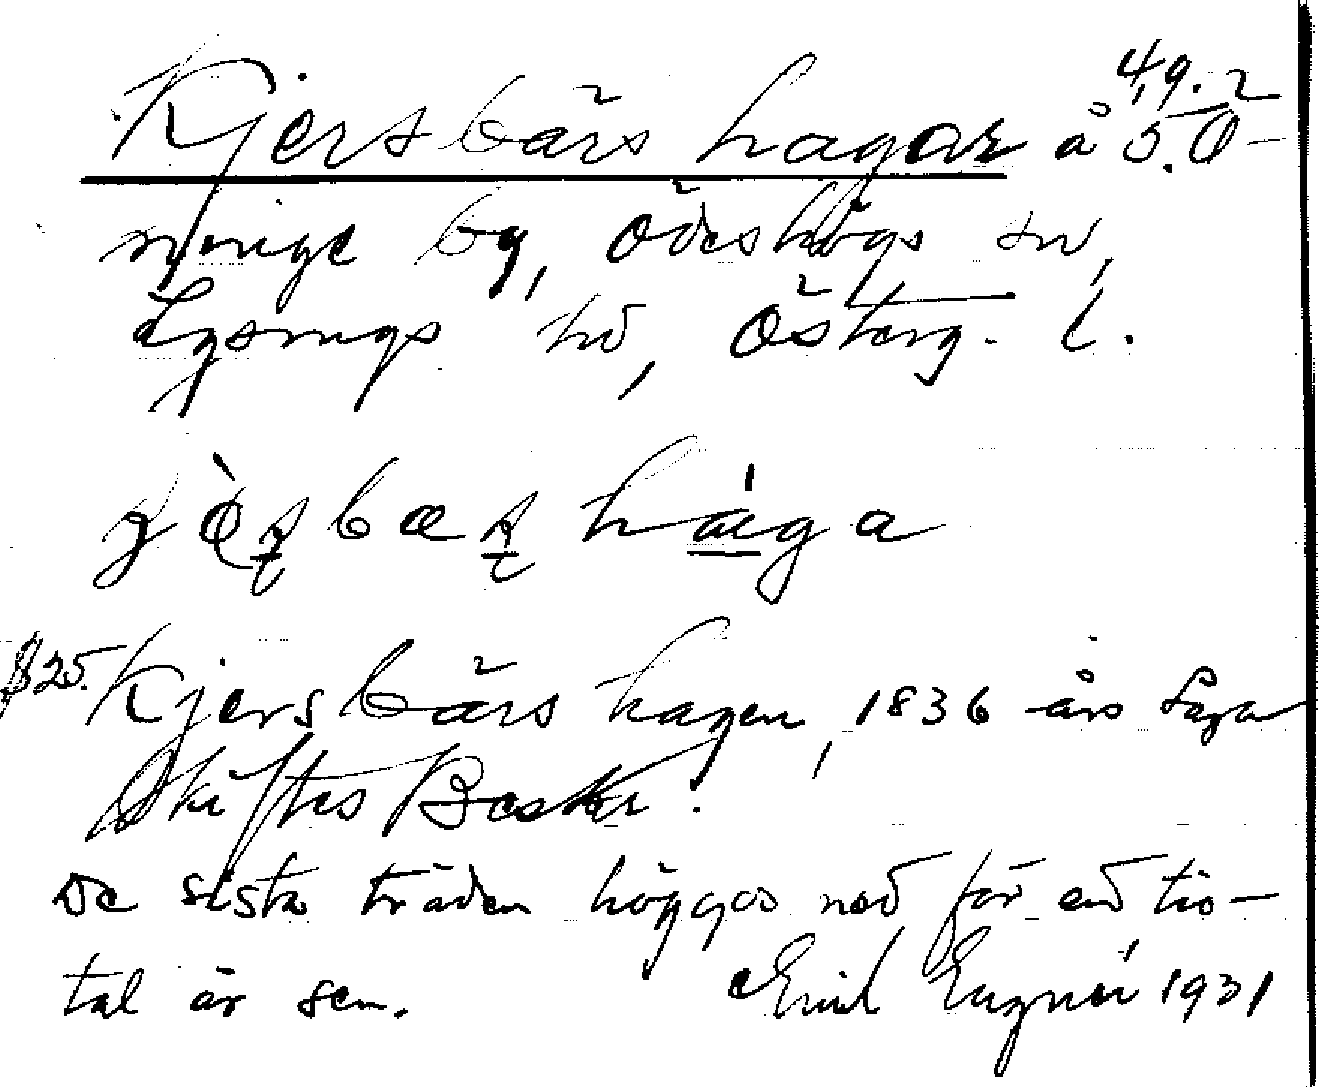 49.2
Kjersbärs hagar å 5. Ö-
ninge by, Ödeshögs sn,
Lysings hd, Österg. l.
hága
§25. Kjersbärs hagen, 1836 års Laga
Skiftes Beskr.
De sista träden höggos ned för ett tio-
tal år sen. Emil Eugner 1931